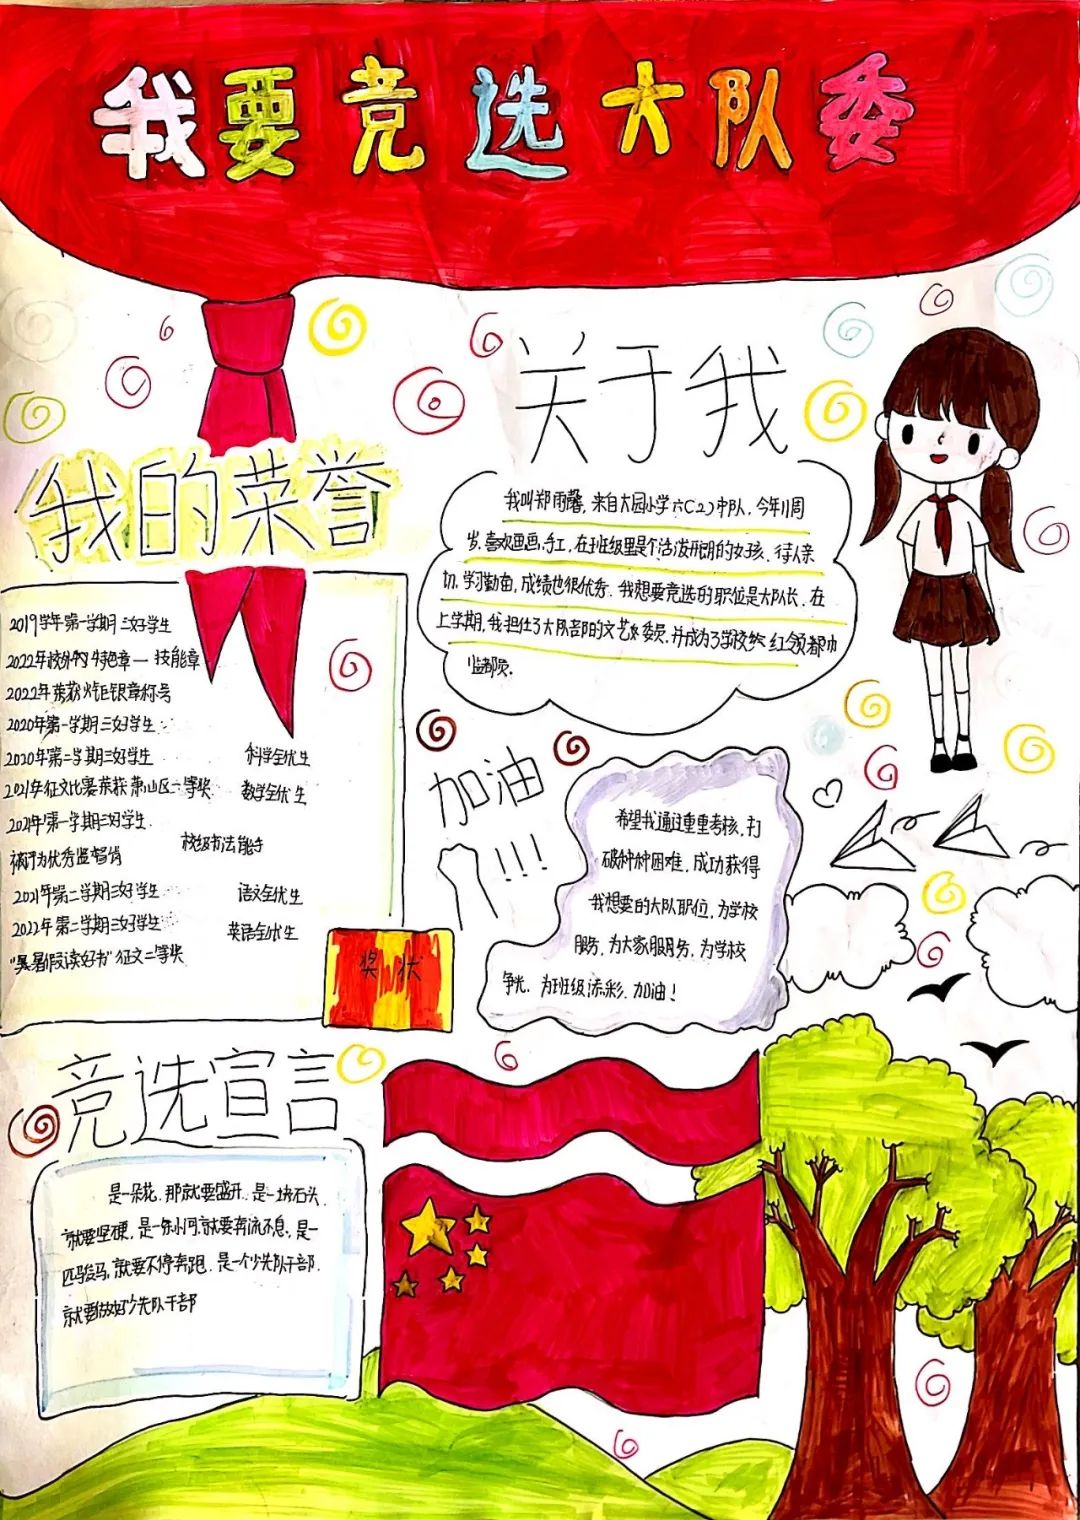 我要竞选大队委
关于我
我叫郑雨馨,来自大园小学六(2)中队,今年11周
岁,喜欢画画,手工,在班级里是个活泼开朗的女孩、待人亲
切,学习勤奋,成绩也很优秀,我想要竞选的职位是大队长,在
上学期,我担任了大队部的文艺委员,并成为了学校红领巾
监督员.
我的荣誉
2019学年第一学期三好学生
2022年 特色章—技能章
2022年荣获火炬银章称号
2020年第一学期三好学生
2020年第二学期三好学生 科学全优生
2021年征文比赛荣获萧山区二等奖 数学全优生
2021年第一学期三好学生
校级书法能手
被评为优秀监督岗
2021年第二学期三好学生 语文全优生
2022年第二学期三好学生 英语全优生
暑假读好书"征文二等奖
奖状
加油
!!!
希望我通过重重考核,打
破种种困难,成功获得
我想要的大队职位,为学校
服务,为大家服务,为学校
争光,为班级添彩,加油!
竞选宣言
是一朵花,那就要盛开,是一块石头,
就要坚硬,是一条小河,就要奔流不息,是一
匹骏马,就要不停奔跑,是一个少先队干部,
就要做好少先队干部